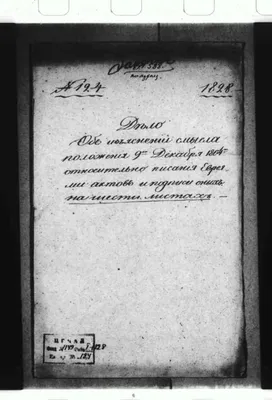 № 124 1828
Дѣло
Объ изъясненіи смысла
положенія 9го Декабря 1804го
относительно писанія Еврея-
ми актовъ и подписи оныхъ
на чистыхъ листахъ.
ЦГИАЛ
124